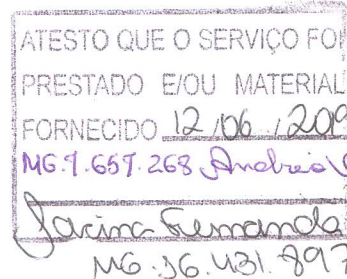 ATESTO QUE O SERVIÇO FOI
PRESTADO E/OU MATERIAL
FORNECIDO 12/06/2019
MG.7.657.268 Andreia V
Fernanda
MG.16.431.897